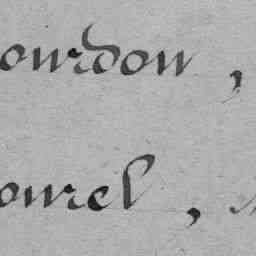 ourdon,
ourel,